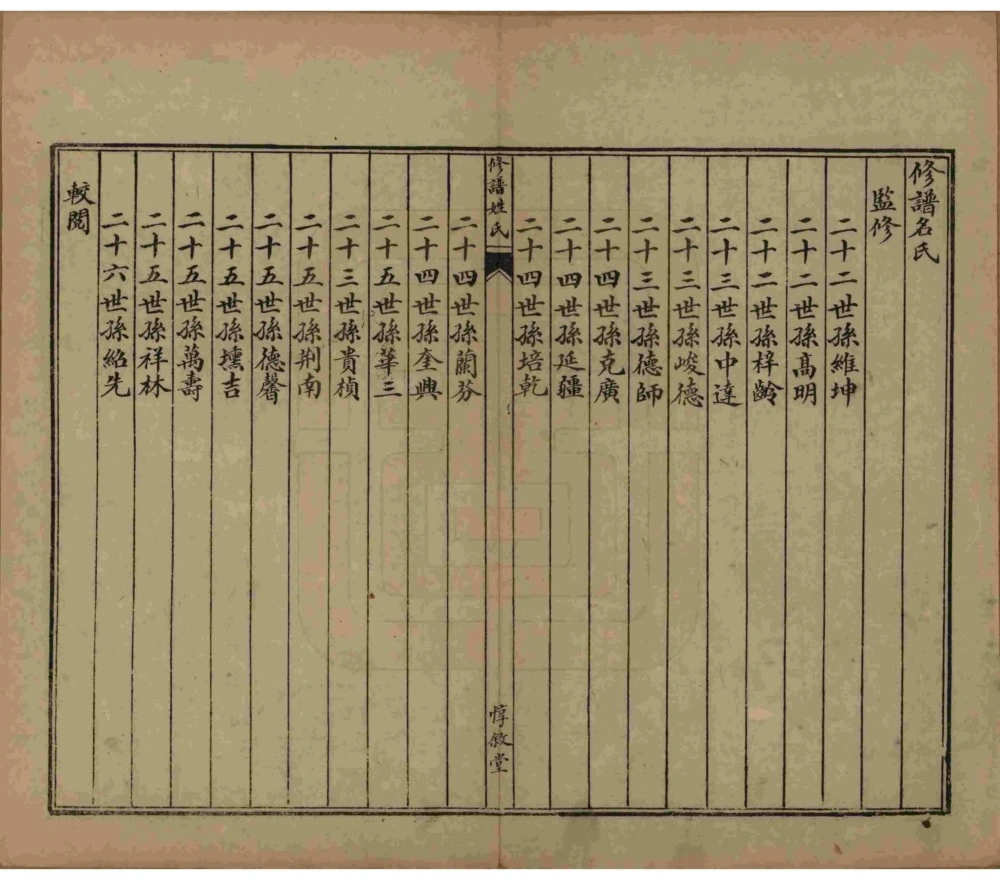 修譜名氏
監修
二十二世孫維坤
二十二世孫高明
二十二世孫梓齡
二十三世孫中達
二十三世孫峻德
二十三世孫德師
二十四世孫克廣
二十四世孫延疆
二十四世孫培乾
修譜姓氏
惇敘堂
二十四世孫蘭芬
二十四世孫奎興
二十五世孫華三
二十三世孫貴楨
二十五世孫荆南
二十五世孫德馨
二十五世孫壎吉
二十五世孫萬壽
二十五世孫祥林
二十六世孫紹先
較閱